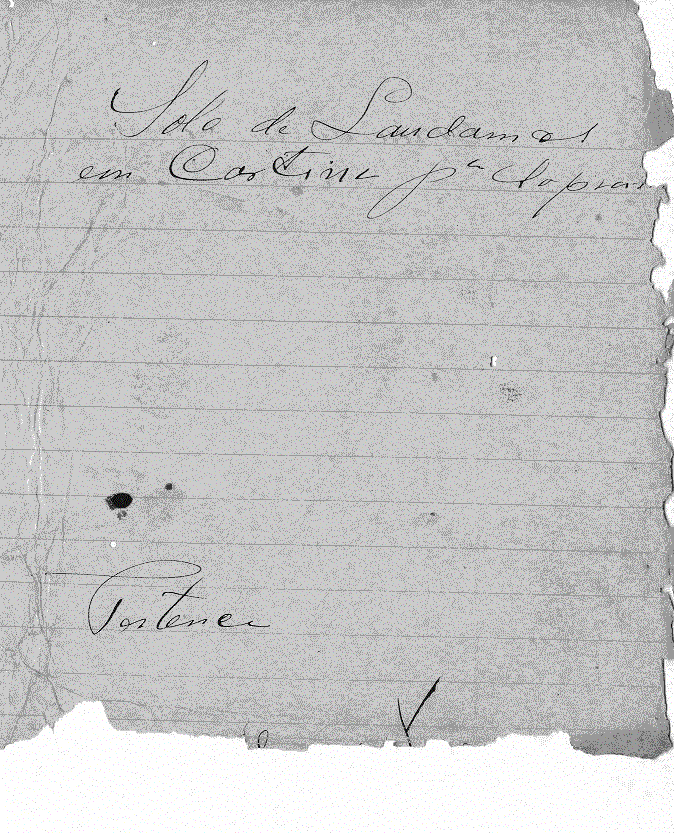 Solo de Laudamos
em Cortina pª Sopran
Pertence